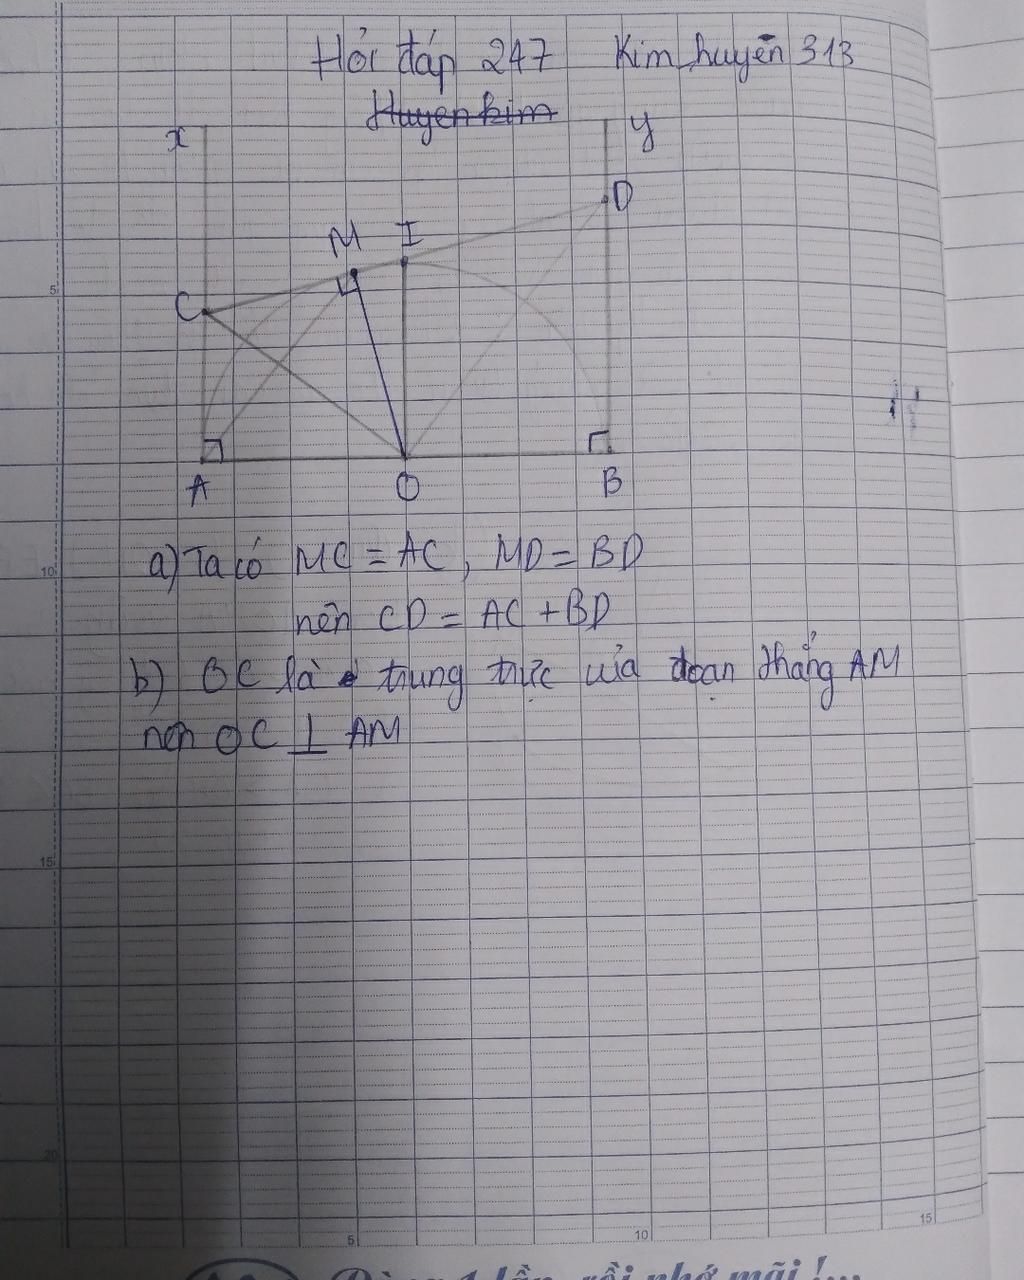 Hỏi đáp 247 Kim huyền 313
Huyen kim
x y
D
M I
C
A O B
a) Ta có MC = AC, MD = BD
nên CD = AC + BD
b) OC là trung trực của đoạn thẳng AM
nên OC ⊥ AM
5
10
15
20
5 10 15
lần, rồi nhớ mãi!...